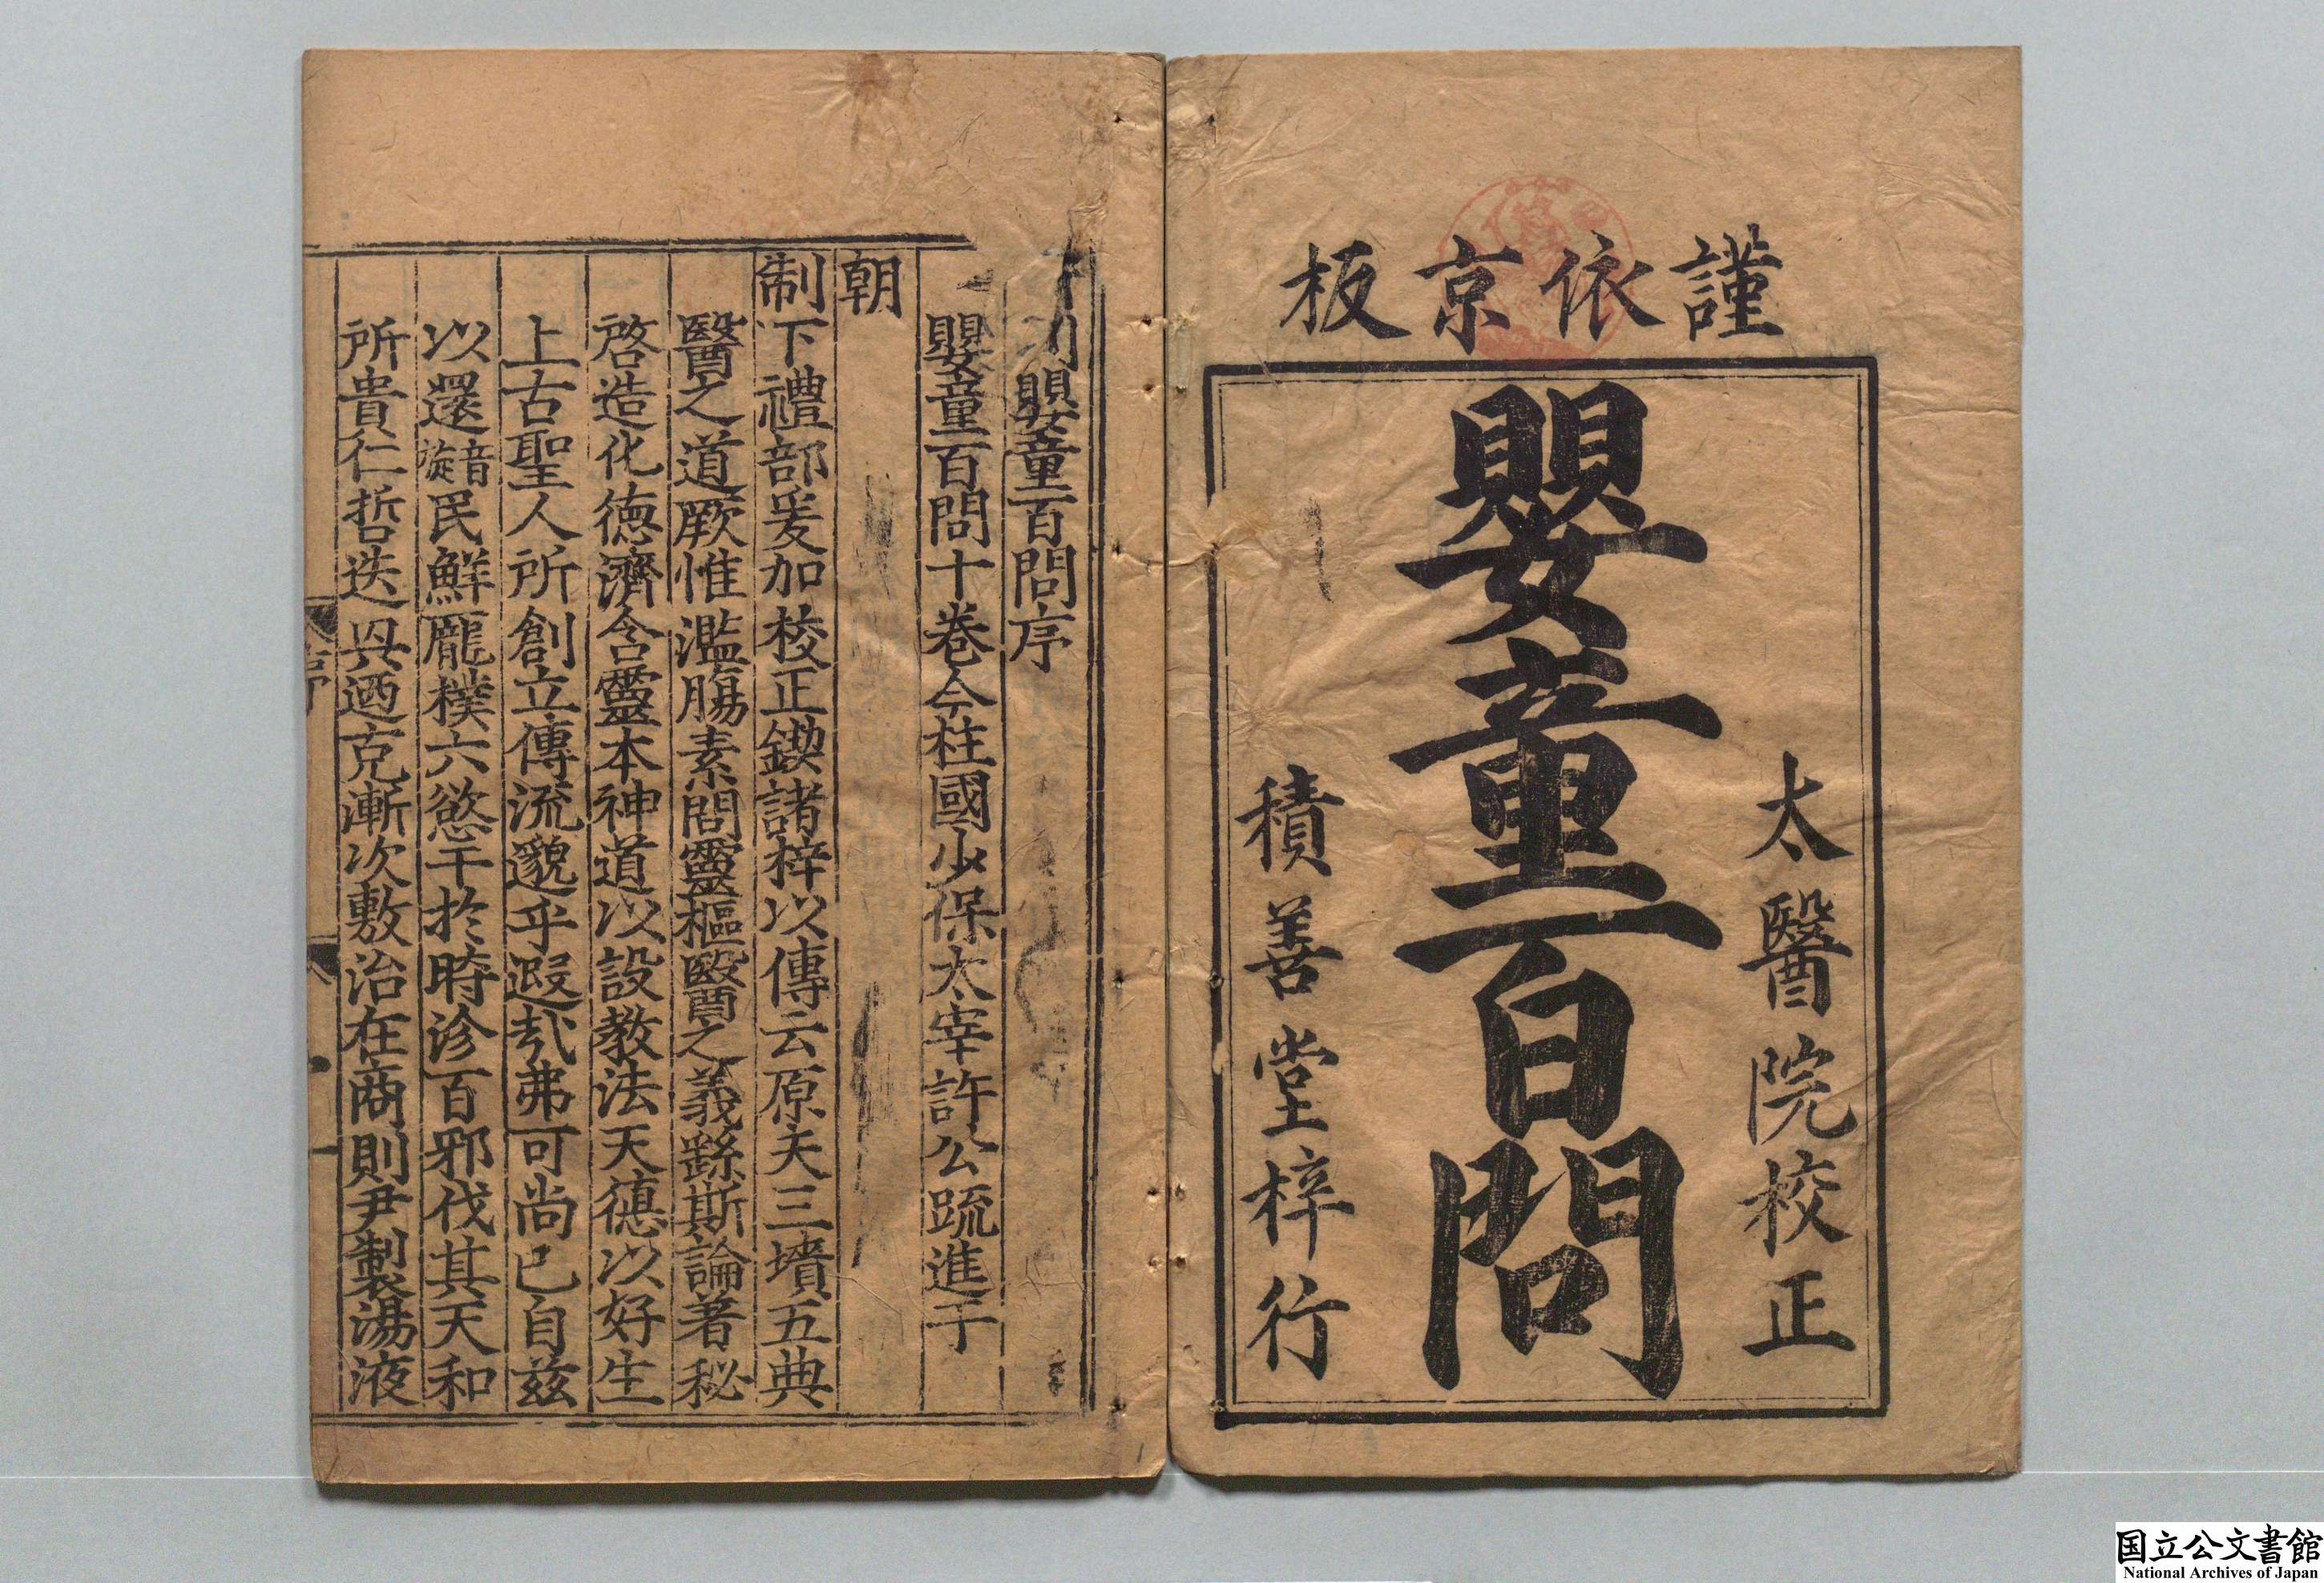 謹依京板
太醫院校正
嬰童百問
積善堂梓行
嬰童百問序
嬰童百問十卷今柱國少保太宰許公疏進于
朝
制下禮部爰加校正鍥諸梓以傳云原夫三墳五典
醫之道厥惟濫觴素問靈樞醫之義繇斯論著秘
啓造化德濟含靈本神道以設教法天德以好生
上古聖人所創立傳流邈乎遐哉弗可尚已自茲
以還音旋民鮮厖樸六慾干於時沴百邪伐其天和
所貴仁哲迭興迺克漸次敷治在商則尹製湯液
序
一
国立公文書館
National Archives of Japan